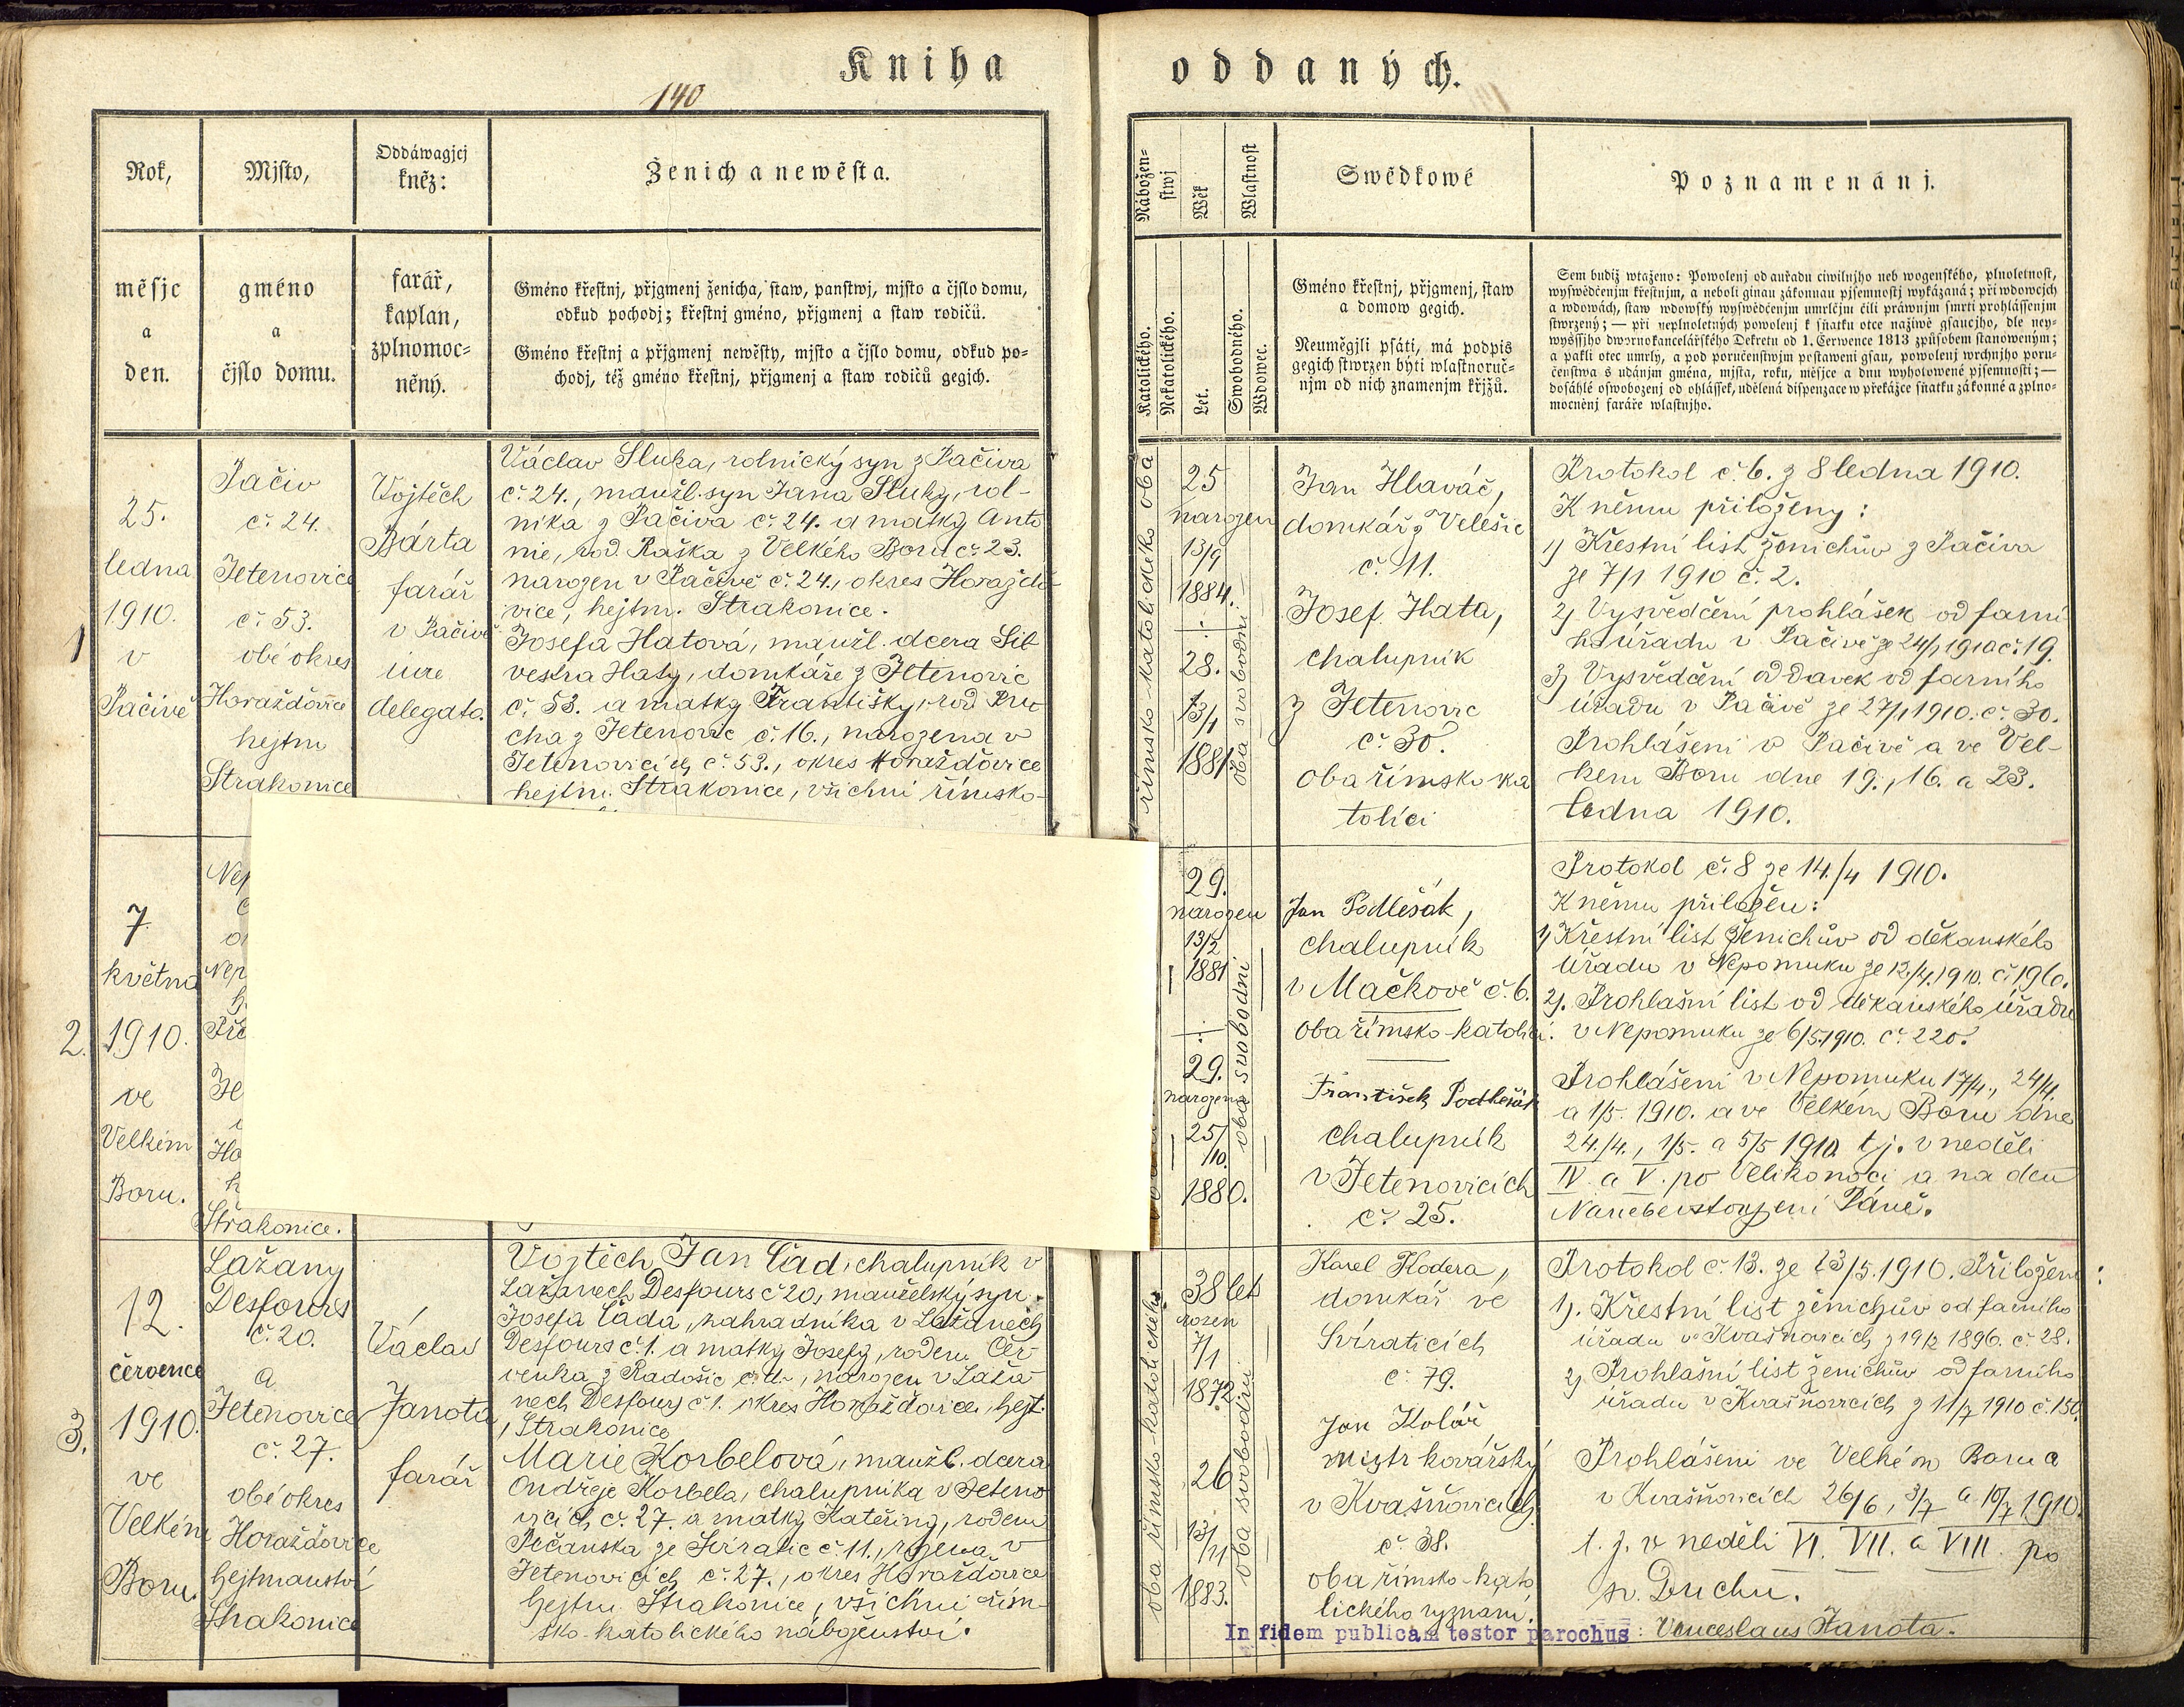 Kniha oddaných.
140
Rok,
měsjc
a
den.
Mjsto,
gméno
a
čjslo domu.
Oddáwagjcj
kněz:
farář,
kaplan,
zplnomoc-
něný.
Ženich a newěsta.
Gméno křestnj, přjgmenj ženicha, staw, panstwj, mjsto a čjslo domu,
odkud pochodj; křestnj gméno, přjgmenj a staw rodičů.
Gméno křestnj a přjgmenj newěsty, mjsto a čjslo domu, odkud po-
chodj, též gméno křestnj, přjgmenj a staw rodičů gegjch.
Nábožen-
stwj
Katolického.
Nekatolického.
Wěk
Let.
Wlastnost
Swobodného.
Wdowec.
Swědkowé
Gméno křestnj, přjgmenj, staw
a domow gegich.
Neuměgjli psáti, má podpis
gegich stwrzen býti wlastnoruč-
njm od nich znamenjm křjžů.
Poznamenánj.
Sem budiž wtaženo: Powolenj od auřadu ciwilnjho neb wogenského, plnoletnost,
wyswědčenjm křestnjm, a neboli ginau zákonnau pjsemnostj wykázaná; při wdowcjch
a wdowách, staw wdowský wyswědčenjm umrlčjm čili práwnjm smrti prohlássenjm
stwrzený; — při neplnoletných powolenj k sňatku otce nažiwě gsaucjho, dle ney-
wyššjho dwornokancelářského Dekretu od 1. Čerwence 1813 způsobem stanoweným;
a pakli otec umrlý, a pod poručenstwjm postaweni gsau, powolenj wrchnjho poru-
čenstwa s udánjm gména, mjsta, roku, měsjce a dnu wyhotowené pjsemnosti; —
dosáhlé oswobozenj od ohlášsek, udělená dispenzace w překážce sňatku zákonné a zplno-
mocněnj faráře wlastnjho.
1
25.
ledna
1910.
v
Pačivě
Pačiv
č. 24.
Jetenovice
č. 53.
obé okres
Horažďovice
hejtm
Strakonice
Vojtěch
Bárta
farář
v Pačivě
iure
delegato.
Václav Sluka, rolnický syn z Pačiva
č. 24., manžl. syn Jana Sluky, rol-
níka z Pačiva č. 24. a matky Anto
nie, rod. Raška z Velkého Boru č. 23.
narozen v Pačivě č. 24., okres Horažďo-
vice, hejtm. Strakonice.
Josefa Hatová, manžl. dcera Sil
vestra Haty, domkáře z Jetenovic
č. 53. a matky Františky, rod. Pru
cha z Jetenovic č. 16., narozena v
Jetenovicích č. 53., okres Horažďovice
hejtm. Strakonice, všichni římsko-
oba svobodni
25
narozen
13/9
1884.
28.
13/1
1881
Jan Hlaváč,
domkář z Velešic
č. 11.
Josef Hata,
chalupník
z Jetenovic
č. 30.
oba římsko ka
tolíci
Protokol č. 6. z 8 ledna 1910.
K němu přiloženy:
1) Křestní list ženichův z Pačiva
ze 7/1 1910 č. 2.
2) Vysvědčení prohlášek od farní
ho úřadu v Pačivě ze 24/1 1910 č. 19.
3) Vysvědčení oddavek od farního
úřadu v Pačivě ze 27/1 1910. č. 30.
Prohlášeni v Pačivě a ve Vel-
kém Boru dne 19., 16. a 23.
ledna 1910.
2.
7.
května
1910.
ve
Velkém
Boru.
Nep
Nep
Pře
Je
Ho
Strakonice.
oba svobodni
29.
narozen
13/2
1881
29.
narozena
25/10.
1880.
Jan Podlešák,
chalupník
v Mačkově č. 6.
oba římsko-katolíci.
František Podlešák
chalupník
v Jetenovicích
č. 25.
Protokol č. 8 ze 14./4 1910.
K němu přiložen:
1) Křestní list ženichův od děkanského
úřadu v Nepomuku ze 12./4. 1910. č. 196.
2). Prohlašní list od děkanského úřadu
v Nepomuku ze 6/5. 1910. č. 220.
Prohlášeni v Nepomuku 17/4., 24/4.
a 1/5. 1910. a ve Velkém Boru dne
24./4., 1/5. a 5/5 1910. t.j. v neděli
IV. a V. po Velikonoci a na den
Nanebevstoupení Páně.
3.
12.
července
1910.
ve
Velkém
Boru.
Lažany
Desfours
č. 20.
a
Jetenovice
č. 27.
obé okres
Horažďovice
hejtmanství
Strakonice
Václav
Janota
farář
Vojtěch Jan Čad, chalupník v
Lažanech Desfours č 20, manželský syn
Josefa Čada, zahradníka v Lažanech
Desfours č. 1. a matky Josefy, rodem Čer-
venka z Radošic č. 11., narozen v Laža-
nech Desfours č. 1. okres Horažďovice, hejt.
Strakonice
Marie Korbelová, manžl. dcera
Ondřeje Korbela, chalupníka v Jeteno
vicích č. 27. a matky Kateřiny, rodem
Pečanska ze Svíratic č. 11., rozena v
Jetenovicích č. 27., okres Horažďovice
hejtm. Strakonice, všichni řím-
sko-katolického náboženství.
oba římsko-katolického
oba svobodni
38 let
rozen
7/1
1872
26
13/11
1883.
Karel Kodera,
domkář ve
Svíraticích
č. 79.
Jan Kolář
mistr kovářský
v Kvášňovicích
č. 38.
oba římsko-kato
lického vyznání.
Protokol č. 13. ze 23/5. 1910. Přiložen:
1). Křestní list ženichův od farního
úřadu v Kvášňovicích z 19/2 1896. č. 28.
2) Prohlašní list ženichův od farního
úřadu v Kvášňovicích z 11/7 1910 č. 150.
Prohlášeni ve Velkém Boru a
v Kvášňovicích 26/6, 3/7 a 10/7 1910.
t. j. v neděli VI. VII. a VIII. po
sv. Duchu.
In fidem publicam testor parochus: Venceslaus Janota.